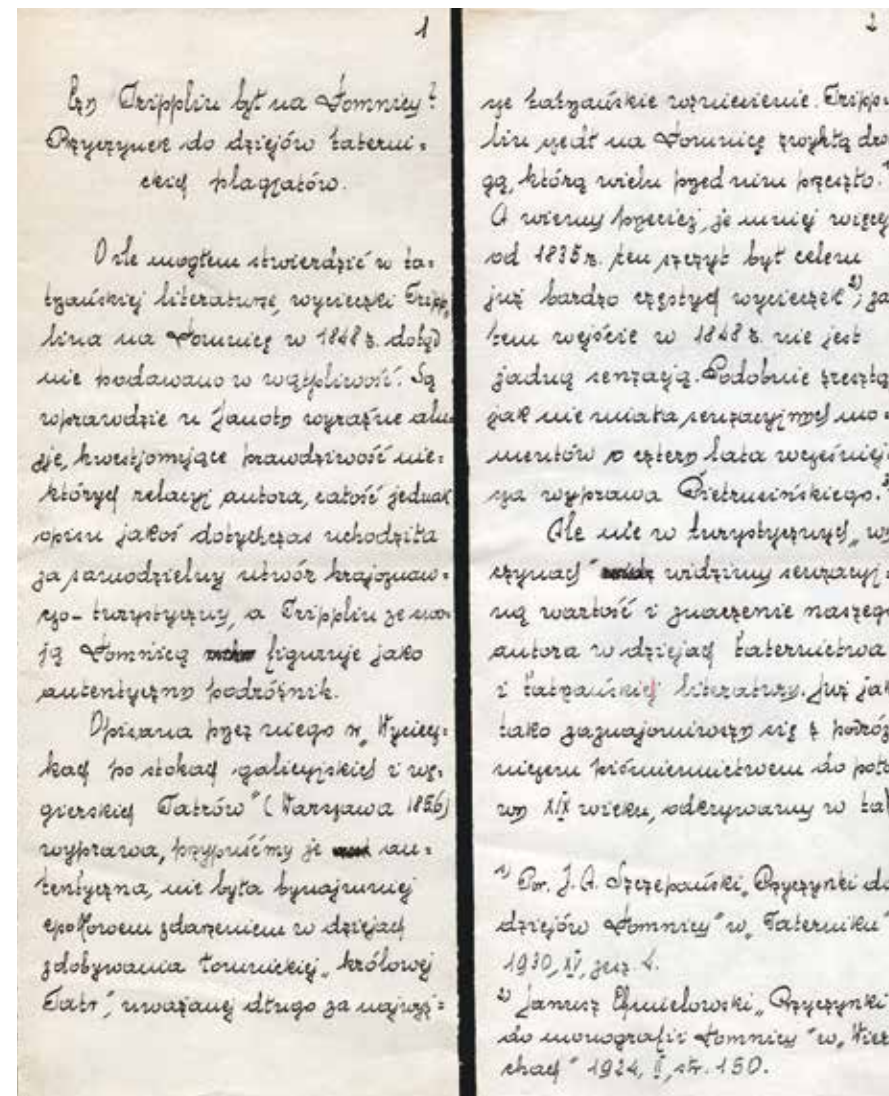 1
Czy Tripplin był na Łomnicy?
Przyczynek do dziejów taterni-
ckich plagjatów.
O ile mogłem stwierdzić w ta-
trzańskiej literaturze, wycieczki Tripp-
lina na Łomnicę w 1848 r. dotąd
nie podawano w wątpliwość. Są
wprawdzie u Janoty wyraźne alu-
zje, kwestjonujące prawdziwość nie-
których relacyj autora, całość jednak
opisu jakoś dotychczas uchodziła
za samodzielny utwór krajoznaw-
czo-turystyczny, a Tripplin ze swo-
ją Łomnicą figuruje jako
autentyczny podróżnik.
Opisana przez niego w „Wyciecz-
kach po stokach galicyjskich i wę-
gierskich Tatrów" (Warszawa 1856)
wyprawa, przypuśćmy że au-
tentyczna, nie była bynajmniej
epokowem zdarzeniem w dziejach
zdobywania łomnickiej „królowej
Tatr", uważanej długo za najwyż-
2
sze tatrzańskie wzniesienie. Tripp
lin szedł na Łomnicę zwykłą dro
gą, którą wielu przed nim przeszło.
A wiemy przecież, że mniej więcej
od 1835 r. ten szczyt był celem
już bardzo częstych wycieczek 2); za
tem wejście w 1848 r. nie jest
żadną sensacją. Podobnie zresztą
jak nie miała sensacyjnych mo-
mentów o cztery lata wcześniej
sza wyprawa Pietrusińskiego. 3
Ale nie w turystycznych „wy
czynach" widzimy sensacyj-
ną wartość i znaczenie naszego
autora w dziejach taternictwa
i tatrzańskiej literatury. Już jak
tako zaznajomiwszy się z podróż
niczem piśmiennictwem do poło
wy XIX wieku, odkrywamy w tak
1) Por. J. A. Szczepański „Przyczynki do
dziejów Łomnicy" w „Taterniku"
1930, XV, zesz. 4.
2) Janusz Chmielowski „Przyczynki
do monografii Łomnicy" w „Wier
chach" 1924, II, str. 150.